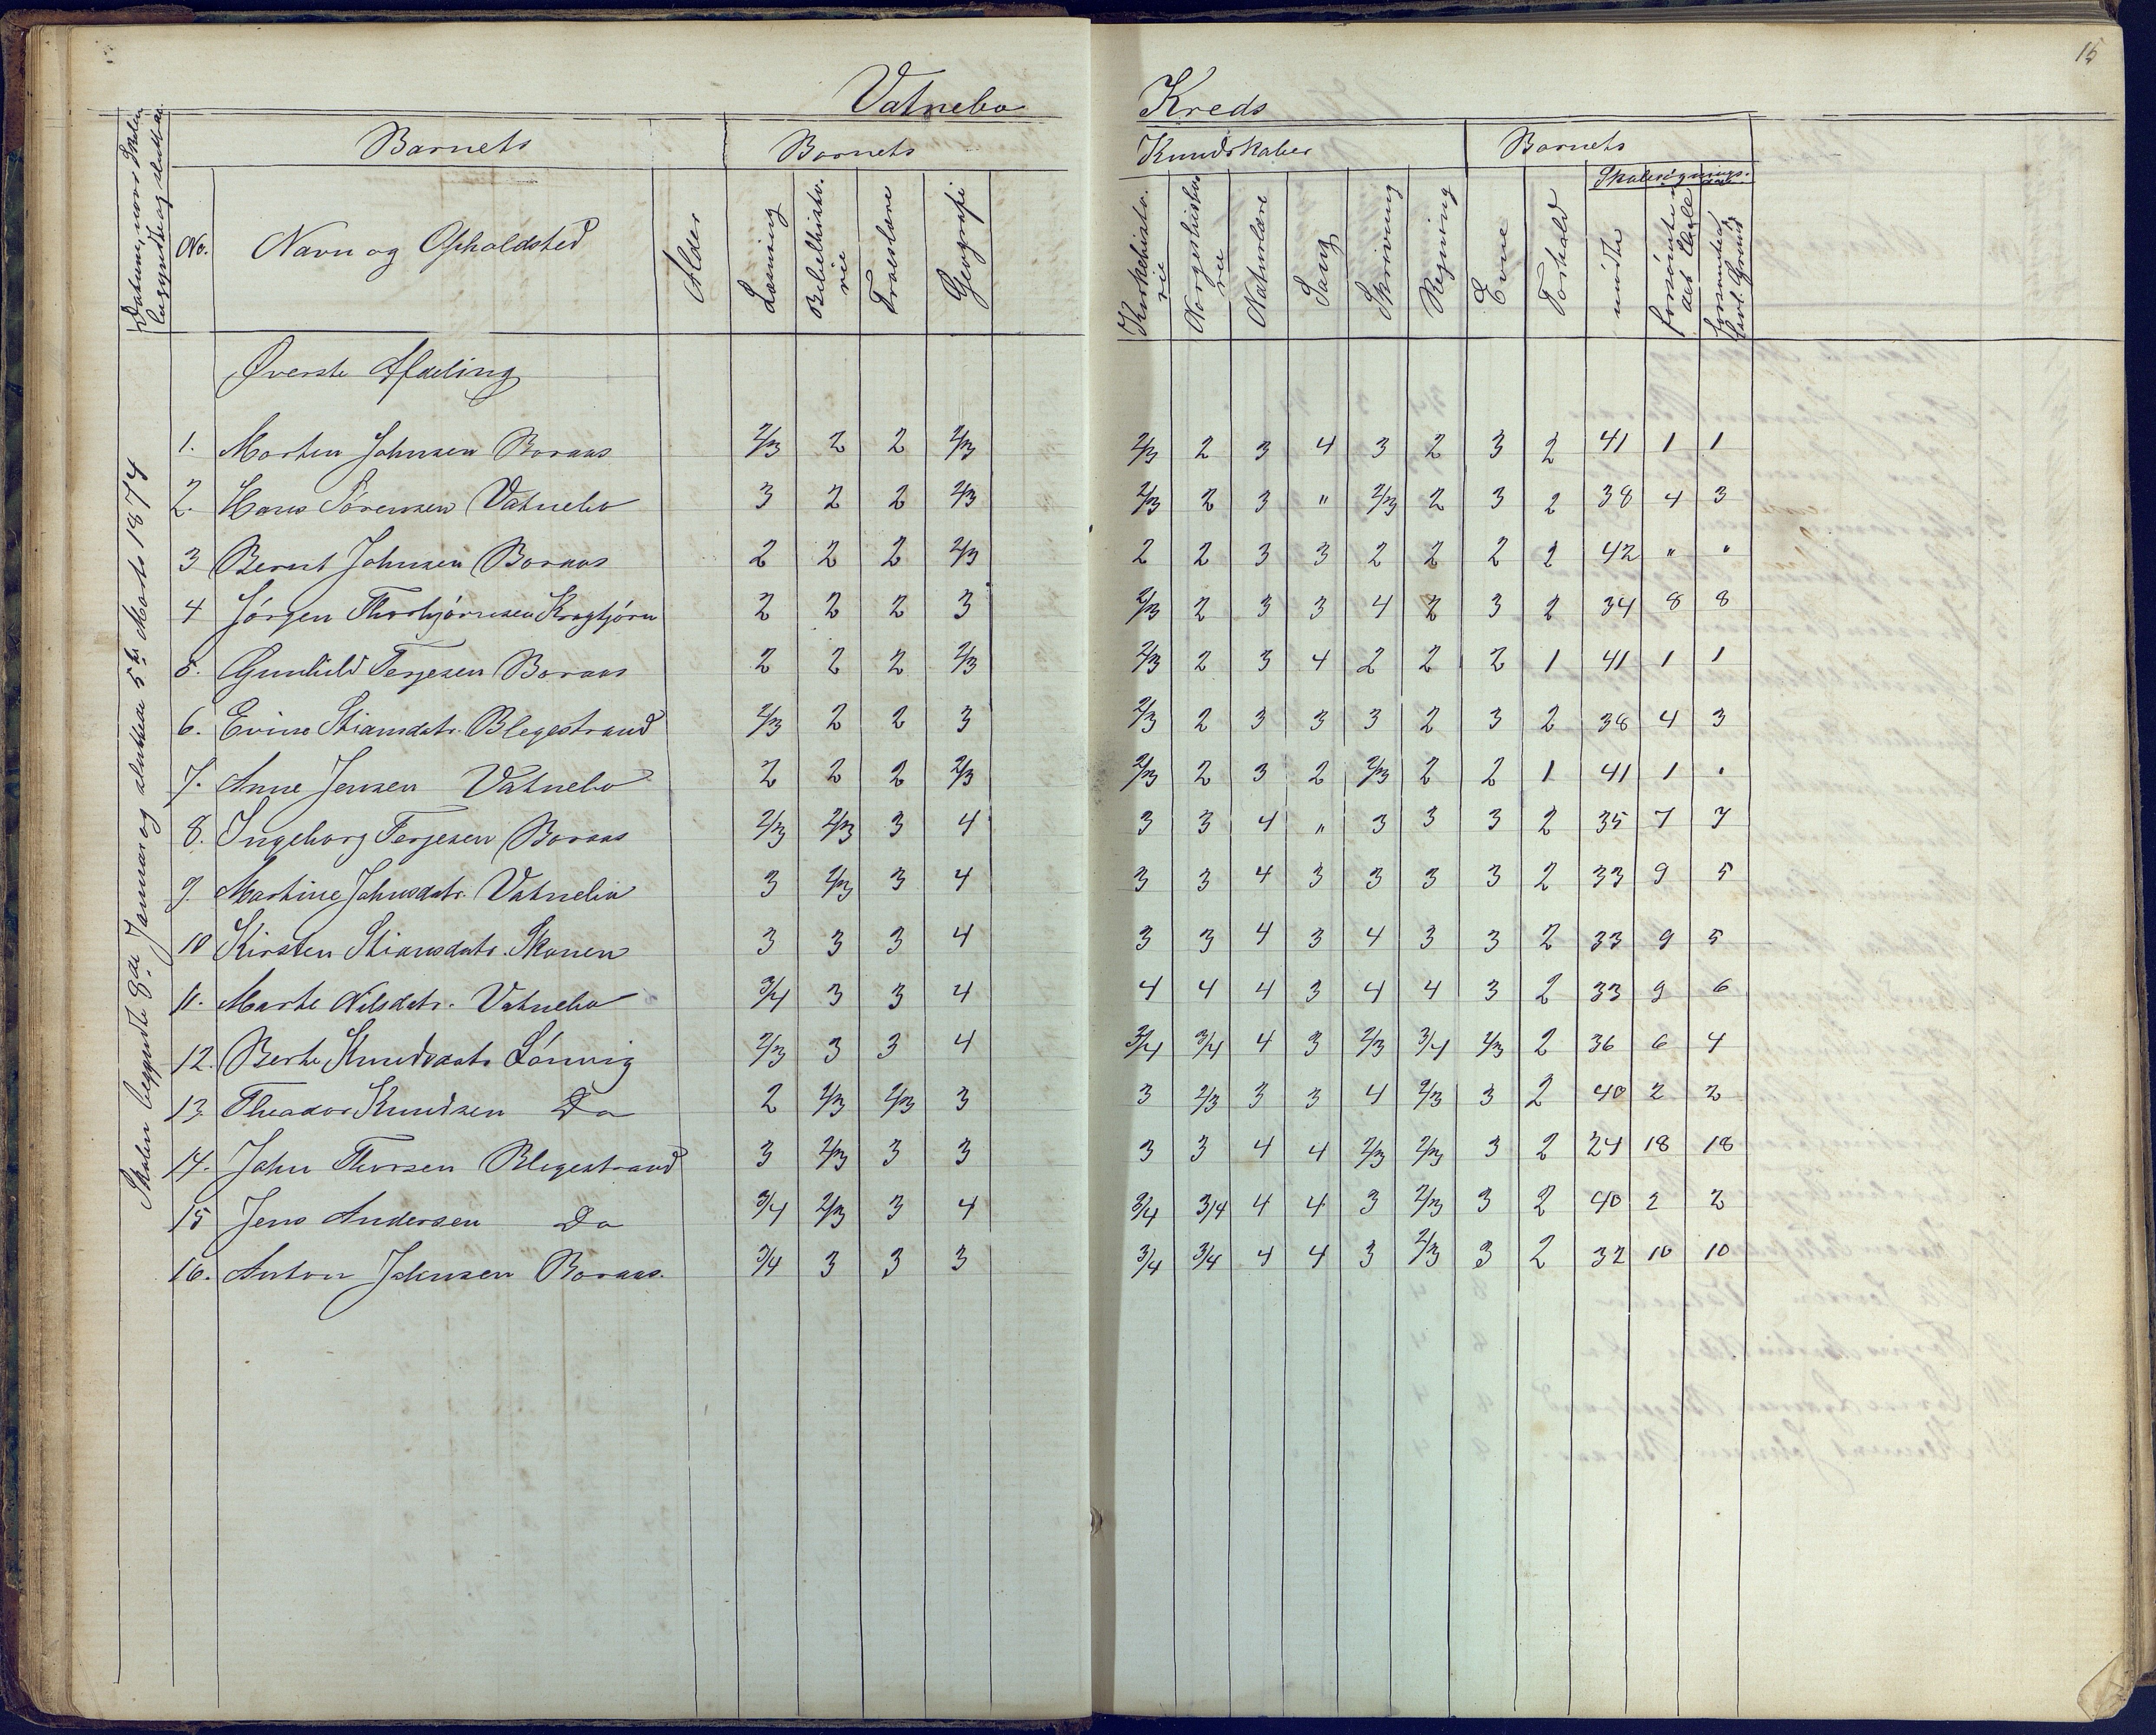 15
Vatnebo Kreds
Datum, naar Skolen begyndte og sluttede.
Barnets
Barnets Kundskaber
Barnets
No. Navn og Opholdsted Alder Læsning Bibelhistorie Troeslære Geografi Kirkehistorie Norgeshistorie Naturlære Sang Skrivning Regning Evne Forhold
Skolesøgnings-
mødte forsømte i det Hele forsømte af lovl. Grund
Skolen begyndte 8de Januar og sluttede 5te Marts 1874
Øverste Afdeling
1. Morten Johnsen Boraas 2/3 2 2 2/3 2/3 2 3 4 3 2 3 2 41 1 1
2. Hans Sørensen Vatnebo 3 2 2 2/3 2/3 2 3 " 2/3 2 3 2 38 4 3
3 Bernt Johnsen Boraas 2 2 2 2/3 2 2 3 3 2 2 2 2 42 " "
4 Jørgen Thorbjørnsen Kragtjørn 2 2 2 3 2/3 2 3 3 4 2 3 2 34 8 8
5. Gunhild Terjesen Boraas 2 2 2 2/3 2/3 2 3 4 2 2 2 1 41 1 1
6. Evine Stiansdatr. Blegestrand 2/3 2 2 3 2/3 2 3 3 3 2 3 2 38 4 3
7. Anne Jensen Vatnebo 2 2 2 2/3 2/3 2 3 2 2/3 2 2 1 41 1 "
8. Ingeborg Terjesen Boraas 2/3 2/3 3 4 3 3 4 " 3 3 3 2 35 7 7
9. Martine Johnsdatr. Vatnebo 3 2/3 3 4 3 3 4 3 3 3 3 2 33 9 5
10 Kirsten Stiansdatr. Skonen 3 3 3 4 3 3 4 3 4 3 3 2 33 9 5
11. Marte Nilsdatr. Vatnebo 3/4 3 3 4 4 4 4 3 4 4 3 2 33 9 6
12. Berte Knudsdatr Lønvig 2/3 3 3 4 3/4 3/4 4 3 2/3 3/4 2/3 2 36 6 4
13 Theodor Knudsen Do 2 2/3 2/3 3 3 2/3 3 3 4 2/3 3 2 40 2 2
14. John Thorsen Blegestrand 3 2/3 3 3 3 3 4 4 2/3 2/3 3 2 24 18 18
15 Jens Andersen Do 3/4 2/3 3 4 3/4 3/4 4 4 3 2/3 3 2 40 2 2
16. Anton Johnsen Boraas. 3/4 3 3 3 3/4 3/4 4 4 3 2/3 3 2 32 10 10